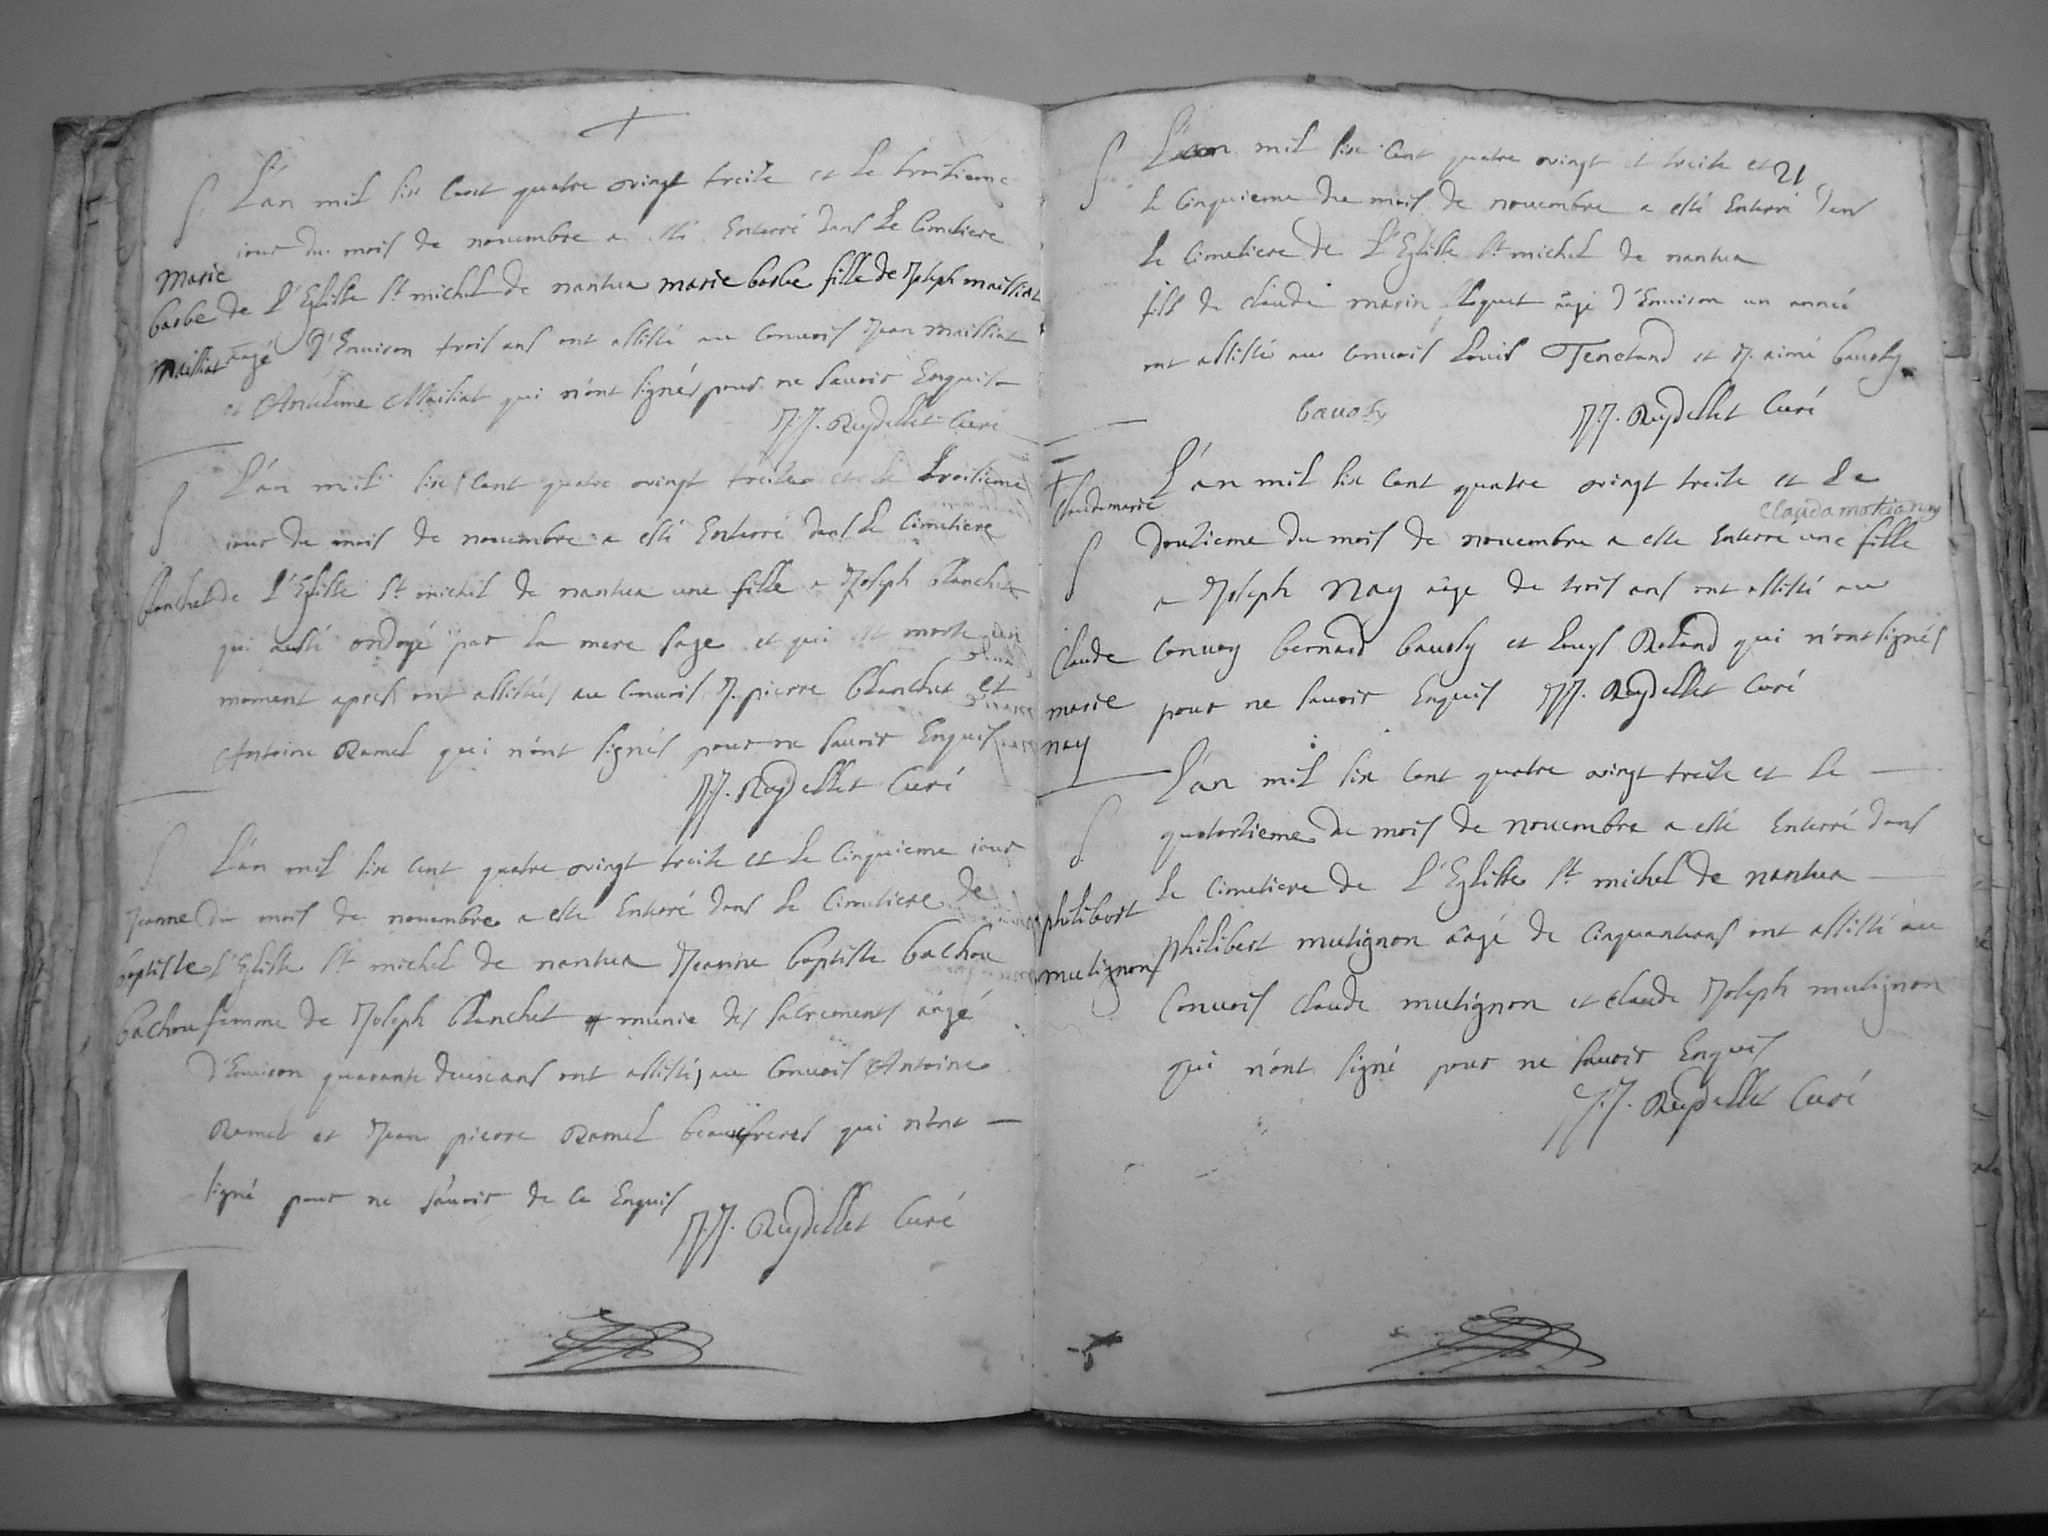 L'an mil six Cent quatre vingt treise et le troisieme
iour du mois de nouembre a esté Enterré dans Le Cimetiere
marie
barbe
maissiat
de L'Eglisse st michel de nantua marie barbe fille de Joseph maissiat
aagé d'Enuiron trois ans ont assisté au Conuois Jean maissiat
et Anthelme Maissiat qui n'ont signés pour ne sauoir Enquis
JJ. Ruydellet Curé
L'an mil six Cent quatre vingt treise et le troisieme
iour du mois de nouembre a esté Enterré dans Le Cimetiere
blanchet
de L'Eglisse st michel de nantua une fille a Joseph blanchet
qui a esté ondoyé par la mere sage et qui est morte un
moment apres ont assistés au Conuois J. pierre blanchet et
Antoine Ramel qui n'ont signés pour ne sauoir Enquis
JJ. Ruydellet Curé
L'an mil six cent quatre vingt treise et Le Cinquieme iour
Jeanne
baptiste
bachou
du mois de nouembre a esté Enterré dans Le Cimetiere de
L'Eglisse st michel de nantua Jeanne baptiste bachou
femme de Joseph blanchet munie des sacrements aagé
d'Enuiron quarante deux ans ont assistés au Conuois Antoine
Ramel et Jean pierre Ramel beaufreres qui n'ont
signé pour ne sauoir de ce Enquis
JJ. Ruydellet Curé
21
L'an mil six Cent quatre vingt et treise et
le Cinquieme du mois de nouembre a esté Enterré dans
Le Cimetiere de L'Eglisse st michel de nantua
fils de claude marin aagé d'Enuiron un année
ont assisté au Conuois Louis Tenetand et J. aimé bauoly
bauoly JJ. Ruydellet Curé
claudemarie
L'an mil six Cent quatre vingt treise et Le
douzieme du mois de nouembre a esté Enterré une fille
a Joseph Nay aage de trois ans ont assisté au
claude
marie
nay
Conuoy bernard bauoly et Louys Roland qui n'ont signés
pour ne sauoir Enquis JJ. Ruydellet Curé
L'an mil six Cent quatre vingt treise et Le
quatorzieme du mois de nouembre a esté Enterré dans
Le Cimetiere de L'Eglisse st michel de nantua
philibert
mutignon
philibert mutignon aagé de Cinquante ans ont assisté au
Conuois claude mutignon et claude Joseph mutignon
qui n'ont signé pour ne sauoir Enquis
JJ. Ruydellet Curé